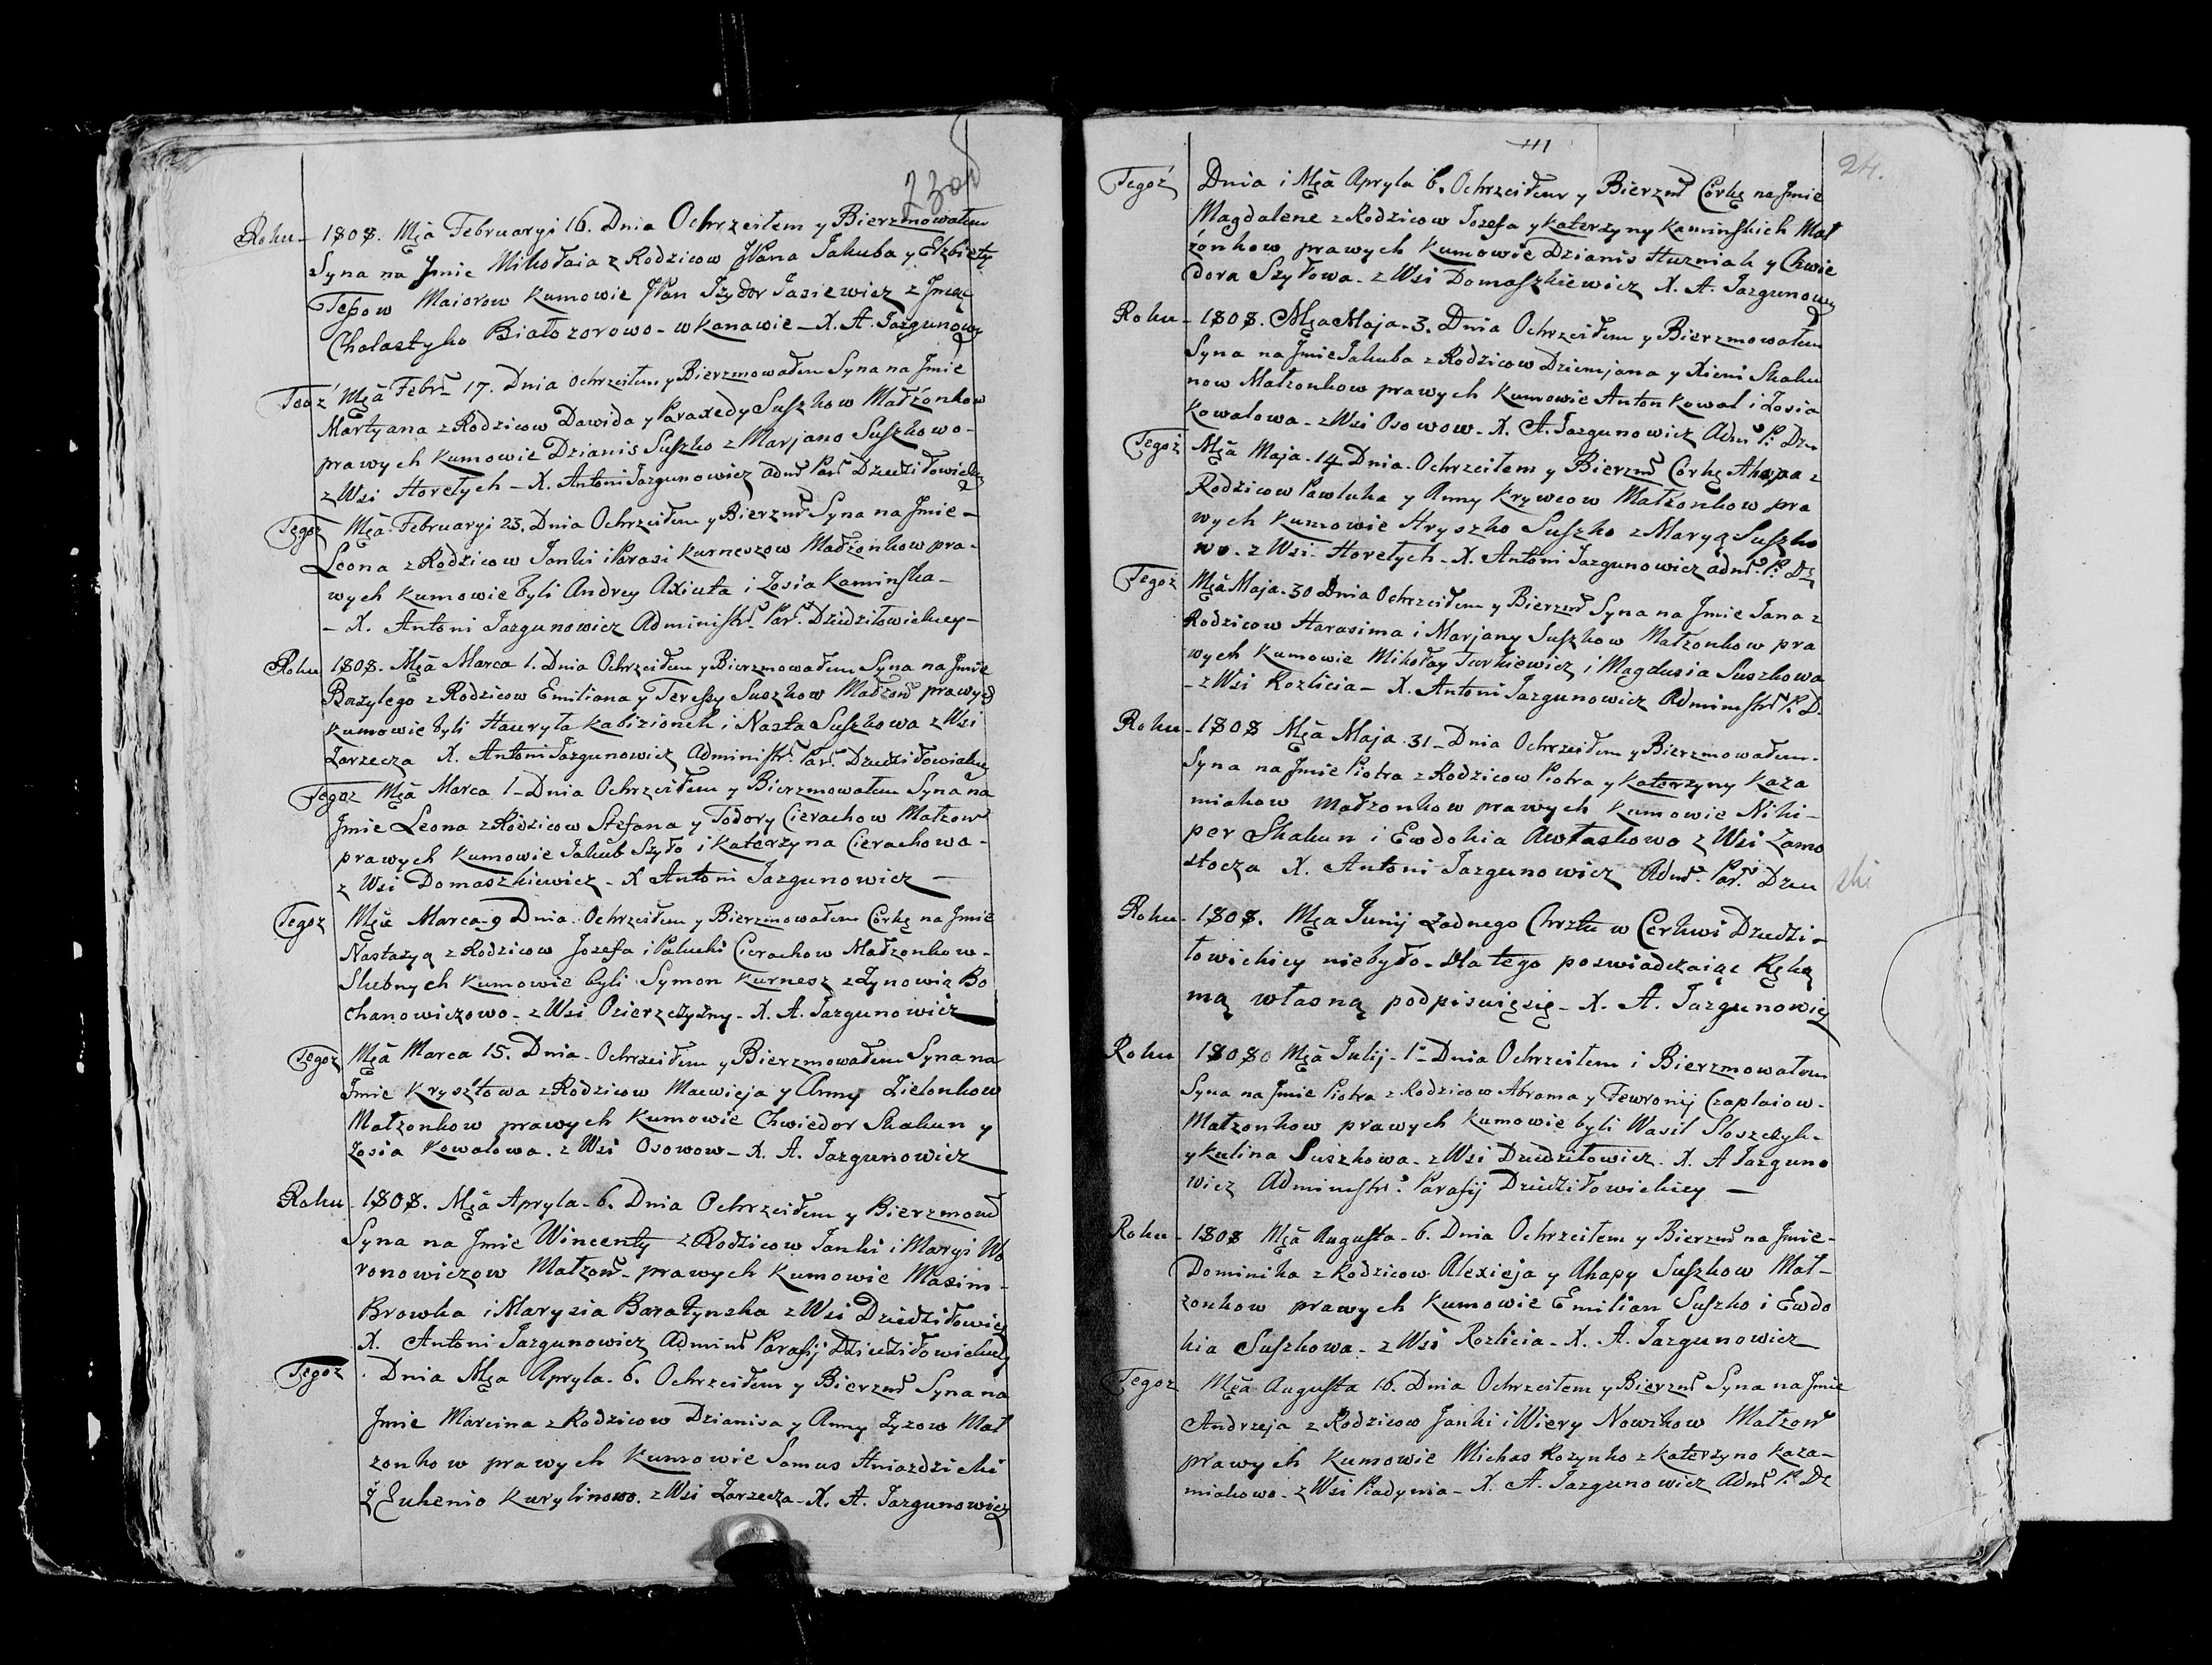 230d
Roku - 1808. Mca Februaryi 16. Dnia Ochrzciłem y Bierzmowałem
Syna na Jmie Mikołaia z Rodzicow JPana Jakuba y Elżbiety
Teßow Maiorow Kumowie JPan Jzydor Jasiewicz z Jmcią
Cholastyko Białozorowo - w Kanawie - X. A. Jazgunowicz
Teoż Mca Febr. 17. Dnia ochrzciłem y Bierzmowałem Syna na Jmie
Martyana z Rodzicow Dawida y Paraxedy Suszkow Małżonkow
prawych Kumowie Dzianis Suszko z Marjano Suszkowo -
z Wsi Horełych - X. Antoni Jazgunowicz adm Par Dziedziłowickiey
Tegoż Mca Februaryi 23. Dnia Ochrzciłem y Bierzm Syna na Jmie -
Leona z Rodzicow Janki i Parasi Kurneszow Małżonkow pra-
wych Kumowie byli Andrey Axiuta i Zosia Kaminska -
- X. Antoni Jazgunowicz Administr. Par. Dziedziłowickiey -
Roku 1808. Mca Marca 1. Dnia Ochrzciłem y Bierzmowałem Syna na Jmie
Bazylego z Rodzicow Emiliana y Teressy Suszkow Małżon prawych
Kumowie byli Hauryła Kabizionek i Nasta Suszkowa z Wsi
Zarzecza X. Antoni Jazgunowicz Administr. Par. Dziedziłowickiey
Tegoz Mca Marca 1 - Dnia Ochrzciłem y Bierzmowałem Syna na
Jmie Leona z Rodzicow Stefana y Todory Cierachow Małzon
prawych Kumowie Jakub Szyło i Katerzyna Cierachowa -
z Wsi Domaszkiewicz - X Antoni Jazgunowicz -
Tegoz Mca Marca 9 Dnia Ochrzciłem y Bierzmowałem Corkę na Jmie
Nastazyą z Rodzicow Jozefa i Pałucki Cierachow Małzonkow -
Slubnych Kumowie byli Symon Kurnesz z Zynowią Bo
chanowiczowo - z Wsi Ozierzczyzny - X. A. Jazgunowicz
Tegoz Mca Marca 15. Dnia - Ochrzciłem y Bierzmowałem Syna na
Jmie Krysztowa z Rodzicow Macwieja y Anny Zielonkow
Małzonkow prawych Kumowie Chwiedor Skakun y
Zosia Kowalowa. z Wsi Osowow - X. A. Jazgunowicz
Roku - 1808. Mca Apryla - 6. Dnia Ochrzciłem y Bierzmował
Syna na Jmie Wincenty z Rodzicow Janki i Maryi Wo
ronowiczow Małzon - prawych Kumowie Maxim -
Browka i Marysia Barażynska z Wsi Dziedziłowicz
X. Antoni Jazgunowicz Admin Parafij Dziedziłowickiey
Tegoz . Dnia Mca Apryla - 6. Ochrzciłem y Bierzm Syna na
Jmie Marcina z Rodzicow Dzianisa y Anny Łyzow Mał
zonkow prawych Kumowie Samus Hniazdzicki
z Euhenio Kurylinowo. z Wsi Zarzecza - X. A. Jazgunowicz
24.
Tegoż Dnia i Mca Apryla 6. Ochrzciłem y Bierzm Corkę na Jmie
Magdalene z Rodzicow Jozefa y Katerzyny Kaminskich Mał
żonkow prawych Kumowie Dzianis Huzniak y Chwie
dora Szyłowa - z Wsi Domaszkiewicz X. A. Jazgunowicz
Roku - 1808. Mca Maja - 3. Dnia Ochrzciłem y Bierzmowałem
Syna na Jmie Jakuba z Rodzicow Dziemjana y Xieni Skaku
now Małzonkow prawych Kumowie Anton Kowal i Zosia
Kowalowa - z Wsi Osowow - X. A. Jazgunowicz Adm P. Dzie
Tegoż Mca Maja - 14 Dnia - Ochrzciłem y Bierzm Corkę Ahapa z
Rodzicow Pawluka y Anny Krywcow Małzonkow pra
wych Kumowie Hryszko Suszko z Maryą Suszko
wo. z Wsi Horełych - X. Antoni Jazgunowicz adm. P. Dz
Tegoż Mca Maja - 30 Dnia Ochrzciłem y Bierzm Syna na Jmie Jana z
Rodzicow Harasima i Marjany Suszkow Małzonkow pra
wych Kumowie Mikołay Jurkiewicz i Magdusia Suszkowa
- z Wsi Rozlicia - X. Antoni Jazgunowicz Administr P. D.
Roku - 1808 Mca Maja 31 - Dnia Ochrzciłem y Bierzmowałem -
Syna na Jmie Piotra z Rodzicow Piotra y Katerzyny Kaza
miakow Małzonkow prawych Kumowie Niki -
per Skakun i Ewdokia Awłaskowo z Wsi Zamo
stocza X. Antoni Jazgunowicz Adm. Par. Dzie
Roku - 1808. Mca Junij żadnego Chrztu w Cerkwi Dziedzi -
łowickiey niebyło - Dla tego poswiadczaiąc Ręką
mą własną podpisuięsię - X. A. Jazgunowicz
Roku 1808o Mca Julij - 1 - Dnia Ochrzciłem i Bierzmowałem
Syna na Jmie Piotra z Rodzicow Abrama y Fewronij Czaplaiow -
Małzonkow prawych Kumowie byli Wasil Słoszczyk -
y Kulina Suszkowa - z Wsi Dziedziłowicz - X. A Jazguno
wicz Administr. Parafij Dziedziłowickiey -
Roku - 1808 Mca Augusta - 6. Dnia Ochrzciłem y Bierzm na Jmie -
Dominika z Rodzicow Alexieja y Ahapy Suszkow Mał -
zonkow prawych Kumowie Emilian Suszko i Ewdo
kia Suszkowa - z Wsi Rozlicia - X. A. Jazgunowicz
Tegoz Mca Augusta 16. Dnia Ochrzciłem y Bierzm Syna na Jmie
Andrzeja z Rodzicow Janki i Wiery Nowikow Małzon
prawych Kumowie Michas Rozynko z Katerzyno Kaza -
miakowo - z Wsi Piadynia - X. A. Jazgunowicz Adm P. Dz